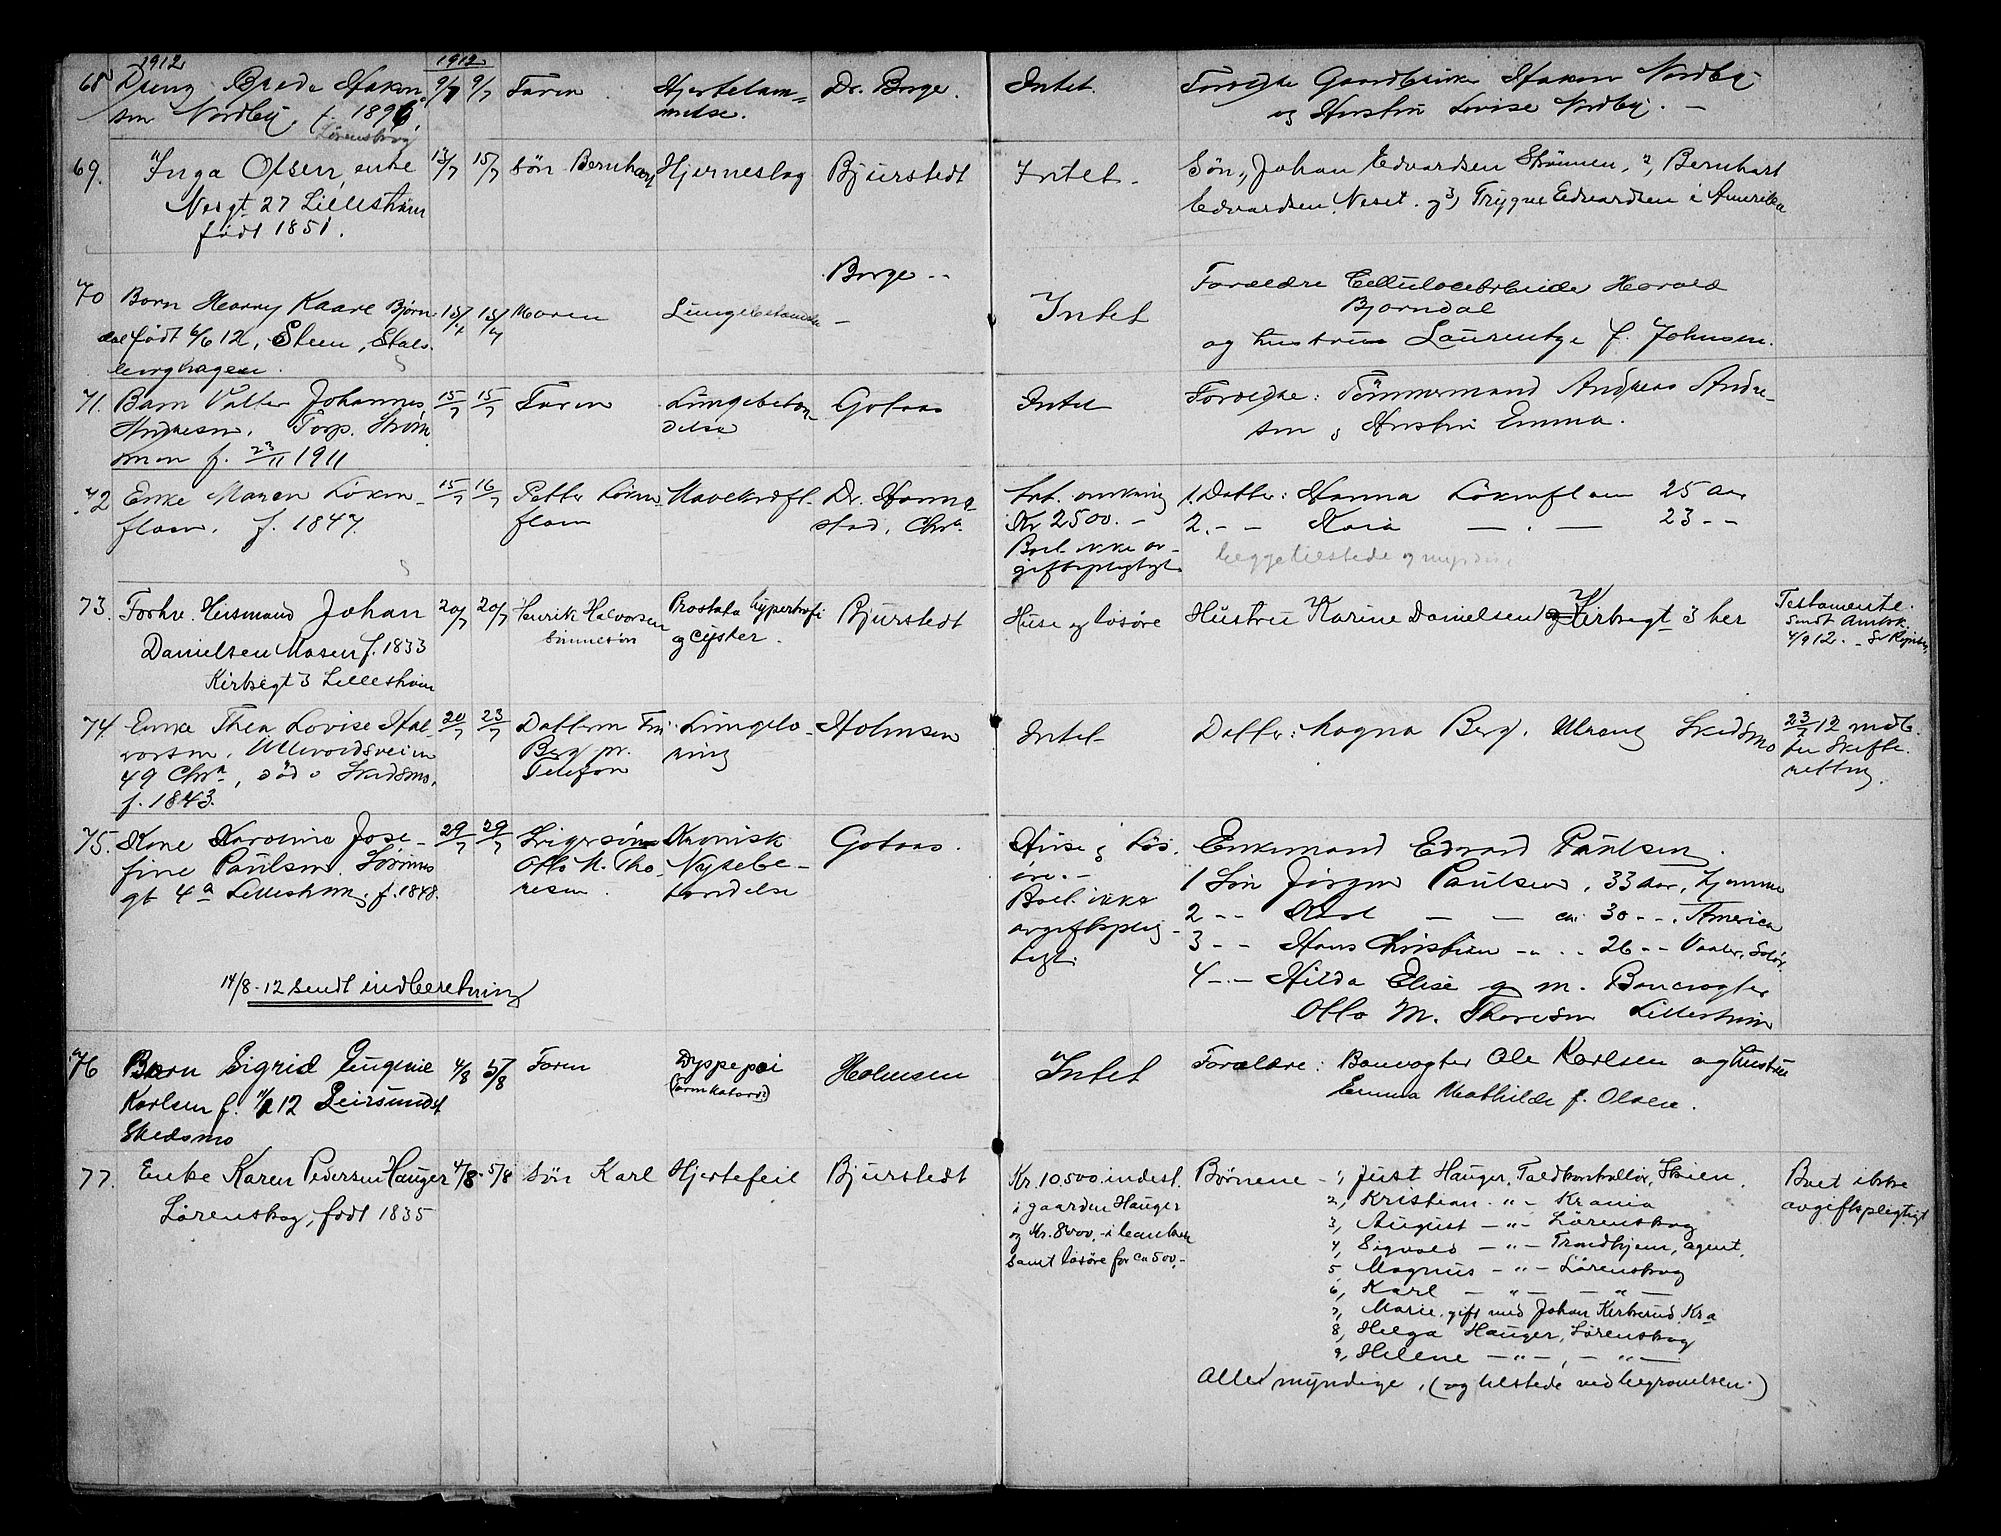 1912
1912
68 Dreng Brede Hakon
sen Nordby f. 1896
Lørenskog
9/7 9/7 Faren
Hjertelam-
melse.
Dr. Borge.
Intet.
Forældre Gaardbruker Hakon Nordby
og Hustru Lovise Nordby. —
69. Inga Olsen, enke
Nergt. 27 Lillestrøm
født 1851.
13/7 15/7 Søn Bernhart Hjerneslag Bjurstedt
Intet.
Søn 1, Johan Edvardsen Strømmen, 2, Bernhart
Edvardsen, Neset. og 3, Trygve Edvardsen i Amerika
70 Barn Harry Kaare Bjørn
dal født 6/6 12, Steen, Stals-
berghagen.
15/7 15/7 Moren
Borge --
Intet
Forældre Cellulosearbeider Harald
Bjørndal
og hustru Laurentze f. Johnsen.
71. Barn Valter Johannes
Andresen, Torp. Strøm
men f. 23/11 1911
15/7 15/7 Faren
Lungebeten-
delse
Gotaas
Intet
Forældre: Tömmermand Andreas Andre-
sen og Hustru Emma.
72 Enke Maren Løken-
flaen, f. 1847.
15/7 16/7 Petter Løken
flaen
Mavekræft.
Dr. Hanna-
stad, Chra.
Kr 2500. -
Boet ikke av-
giftspligtigt.
1. Datter: Hanna Løkenflaen 25 Aar
2. - - Kaia — . — 23 - -
begge tilstede og myndige
73. Forhv. Husmand Johan
Danielsen Mosen f. 1833
Kirkegt 3 Lillestrøm
20/7 20/7 Henrik Halvorsen
Prostata hypertrofi
og cyster.
Bjurstedt
Huse og løsøre
Hustru Karine Danielsen Kirkegt 3 her
Testamente.
Sendt Amtsk.
4/9 12.
74. Enke Thea Lovise Hal-
vorsen, Ullevoldsveien
49 Chra, død i Skedsmo,
f. 1843.
20/7 23/7 Datteren Fru
Berg pr.
Telefon
Holmsen
Intet
Datter: Magna Berg, Skedsmo
23/7 12 medt.
for Skifte-
retten.
75. Kone Karoline Jose-
fine Paulsen, Storm
gt 4a Lillestrøm, f. 1848.
29/7 29/7 Svigersøn
Otto M. Tho-
resen
Kronisk
Nyrebe-
tændelse
Gotaas.
Huse og Løs-
øre. -
Boet ikke
avgiftsplig-
tigt.
Enkemand Edvard Paulsen.
1 Søn Jørgen Paulsen, 33 aar, hjemme
2 - - Karl — — ca. 30 - -, America
3 - - Hans Christian - - 26 - - Vaaler, Solør.
4 - - Hilda Elise g. m. Banevogter
Otto M. Thoresen Lillestrøm
14/8-12 sendt indberetning
76 Barn Sigrid Eugenie
Karlsen f. 12 Leirsund st
Skedsmo
4/8 5/8 Faren
Dyppepsi
(Tarmkatarr?)
Holmsen
Intet
Forældre: Banevogter Ole Karlsen og hustru
Emma Mathilde f. Olsen.
77. Enke Karen Pedersen Hauger
Lørenskog, født 1835
4/8 5/8 Søn Karl Hjertefeil Bjurstedt
Kr. 10.500 indest.
i gaarden Hauger
og Kr. 8000,- i banken
samt løsøre for ca 500,-
Børnene - 1, Just Hauger, Toldkontrollør, Skien.
2, Kristian - " - Krania
3, August — " — Lørenskog
4, Sigvald — " — Trondhjem, agent.
5 Magnus — " — Lørenskog
6, Karl — " — — " —
7, Marie, gift med Johan Kirkerud. Kra
8, Helga Hauger, Lørenskog
9, Helene — " — , — " —
Alle myndige, (og tilstede ved begravelsen.)
Boet ikke
avgiftspligtigt